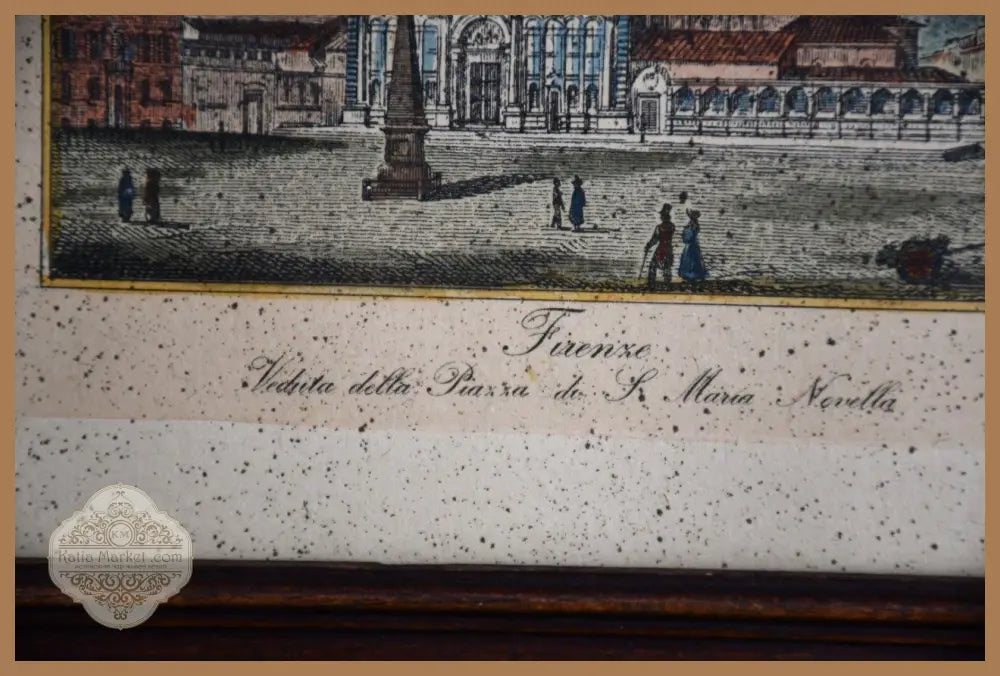 Firenze
Veduta della Piazza di S. Maria Novella
KM
Katia Market .com